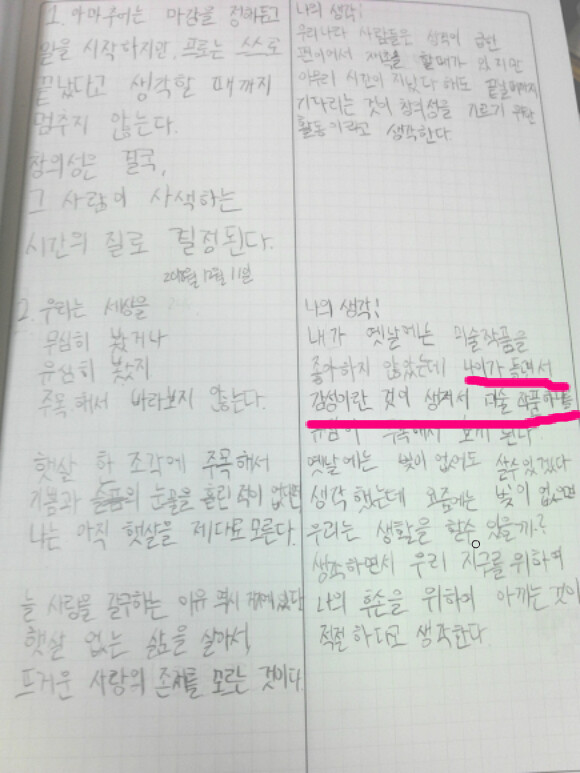 1. 아마추어는 마감을 정해두고
일을 시작하지만, 프로는 스스로
끝났다고 생각할 때까지
멈추지 않는다.
창의성은 결국,
그 사람이 사색하는
시간의 질로 결정된다.
나의 생각!
우리나라 사람들은 성격이 급한
편이어서 재촉을 할때가 있지만
아무리 시간이 지났다 해도 끝날때까지
기다리는 것이 창의성을 기르기 위한
활동이라고 생각한다.
2. 우리는 세상을
무심히 봤거나
유심히 봤지
주목해서 바라보지 않는다.
햇살 한 조각에 주목해서
기쁨과 슬픔의 눈물을 흘린 적이 없다면
나는 아직 햇살을 제대로 모른다.
늘 사랑을 갈구하는 이유 역시 거기에 있다
햇살 없는 삶을 살아서,
뜨거운 사랑의 존재를 모르는 것이다.
나의 생각!
내가 옛날에는 미술작품을
좋아하지 않았는데 나이가 들면서
감성이란 것이 생겨서 미술 작품 하나를
유심히 주목해서 보게 된다.
옛날에는 빛이 없어도 살수있겠다
생각했는데 요즘에는 빛이 없으면
우리는 생활을 할수 있을까?
생각하면서 우리 지구를 위하여
나의 후손을 위하여 아끼는 것이
적절하다고 생각한다.